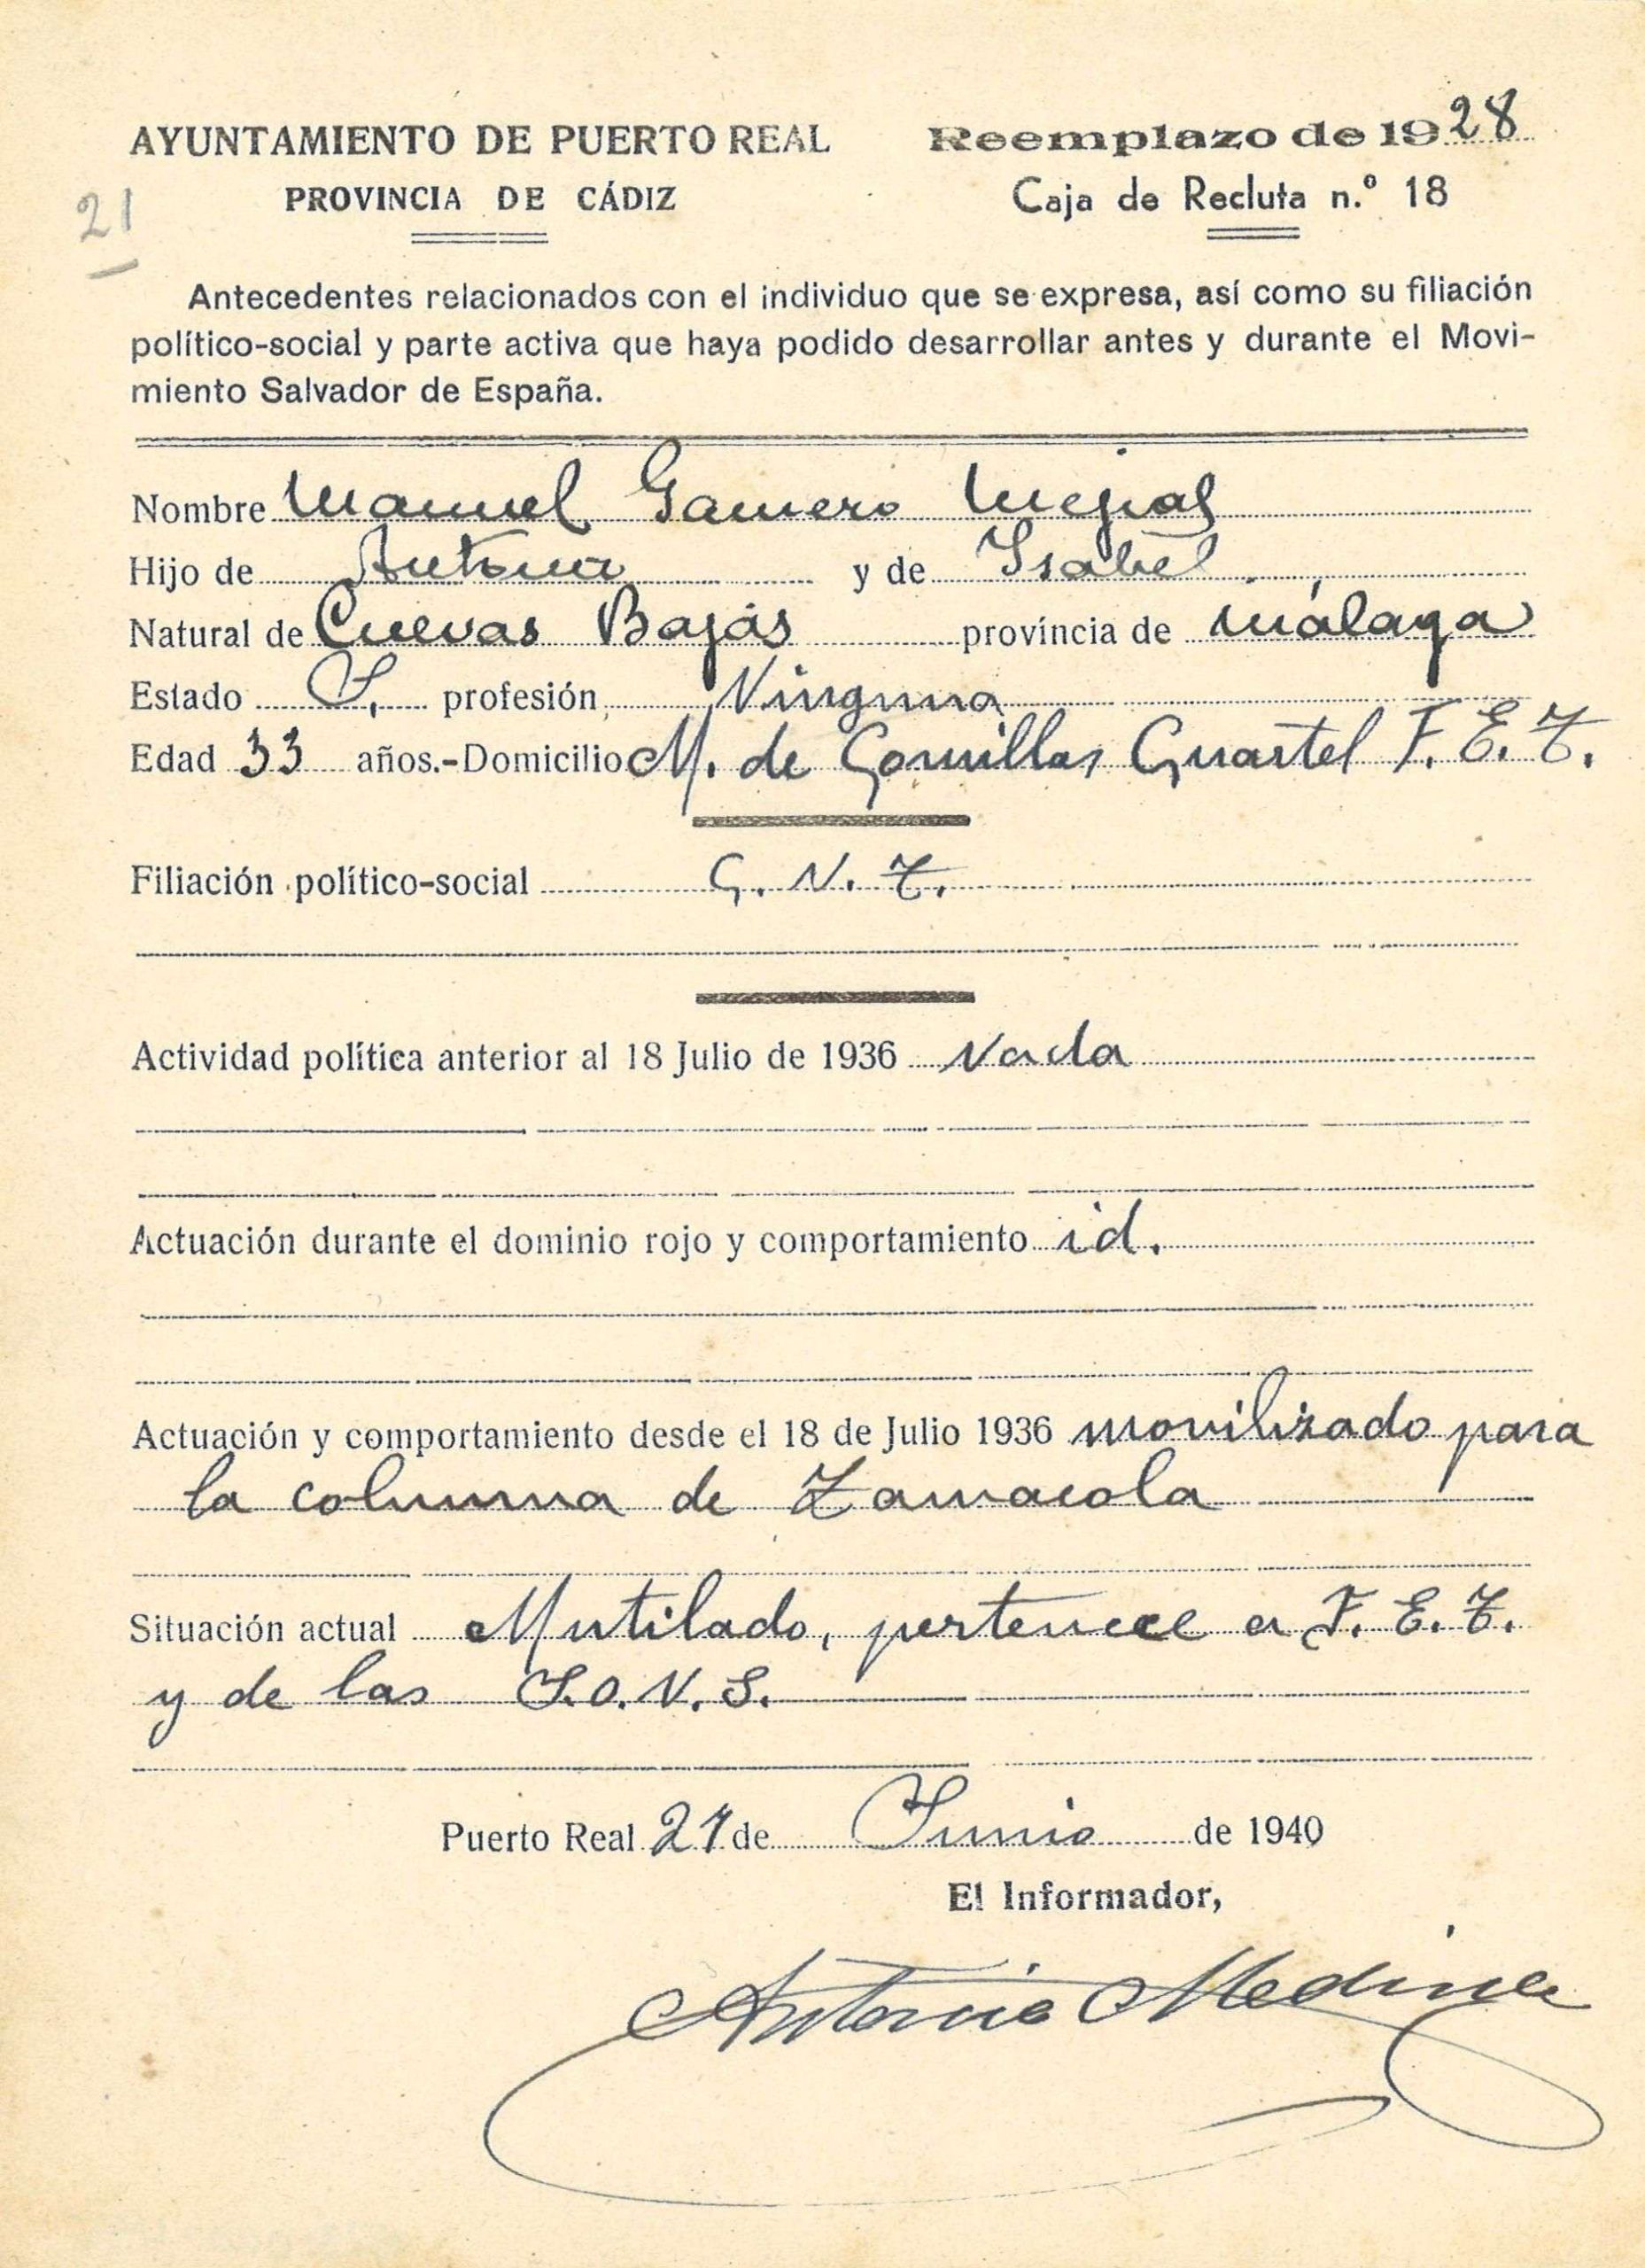 AYUNTAMIENTO DE PUERTO REAL
PROVINCIA DE CÁDIZ
Reemplazo de 1928
Caja de Recluta n.º 18
21
Antecedentes relacionados con el individuo que se expresa, así como su filiación
político-social y parte activa que haya podido desarrollar antes y durante el Movi-
miento Salvador de España.
Nombre Manuel Gamero Mejias
Hijo de Antonio y de Isabel
Natural de Cuevas Bajas provincia de Málaga
Estado S. profesión Ninguna
Edad 33 años.-Domicilio M. de Comillas Cuartel F. E. T.
Filiación político-social C. N. T.
Actividad política anterior al 18 Julio de 1936 Nada
Actuación durante el dominio rojo y comportamiento id.
Actuación y comportamiento desde el 18 de Julio 1936 movilizado para
la columna de Zamacola
Situación actual Mutilado, pertenece a F. E. T.
y de las J.O.N.S.
Puerto Real 27 de Junio de 1940
El Informador,
Antonio Medina